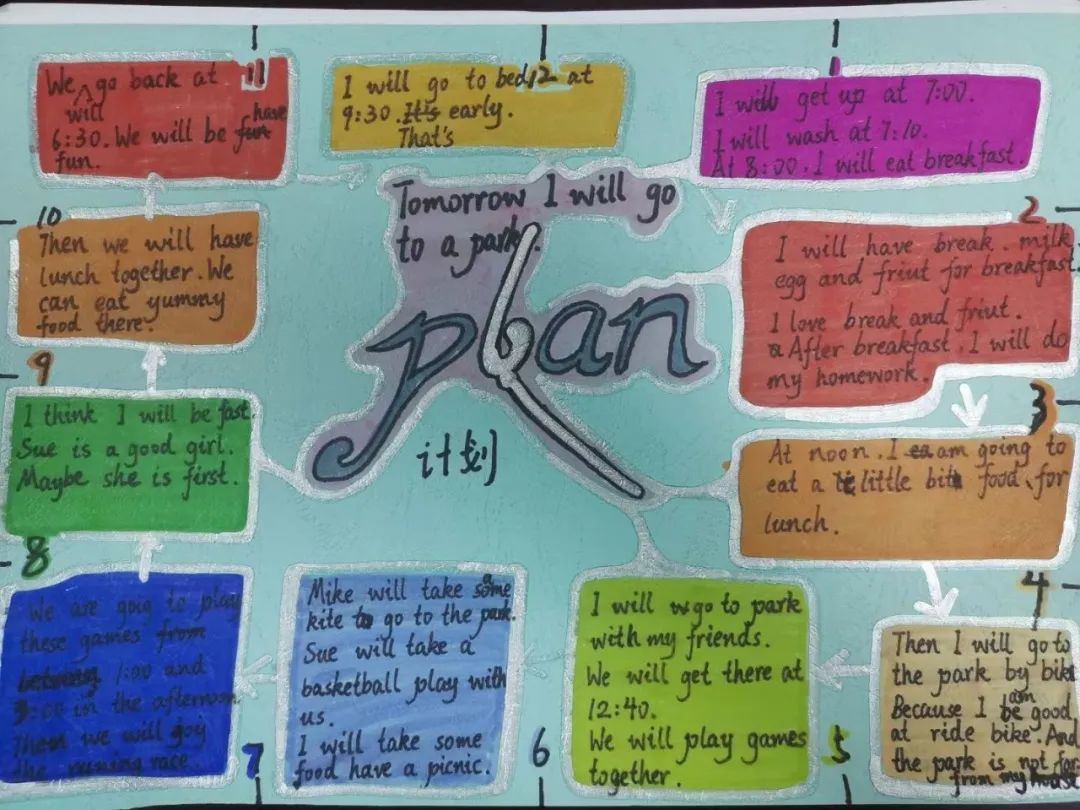 Tomorrow I will go
to a park.
plan
计划
1
I will get up at 7:00.
I will wash at 7:10.
At 8:00. I will eat breakfast.
2
I will have break. milk
egg and friut for breakfast.
I love break and friut.
After breakfast. I will do
my homework.
3
At noon. I am going to
eat a little bit food for
lunch.
4
Then I will go to
the park by bike
Because I am good
at ride bike. And
the park is not far
from my house
5
I will go to park
with my friends.
We will get there at
12:40.
We will play games
together.
6
Mike will take a
kite go to the park.
Sue will take a
basketball play with
us.
I will take some
food have a picnic.
7
We are goig to play
these games from
1:00 and
3:00 in the afternoon
Then we will goiy
the runing race.
8
I think I will be fast.
Sue is a good girl.
Maybe she is first.
9
Then we will have
lunch together. We
can eat yummy
food there.
10
We will go back at
6:30. We will be have
fun.
11
I will go to bed at
9:30. That's early.
12